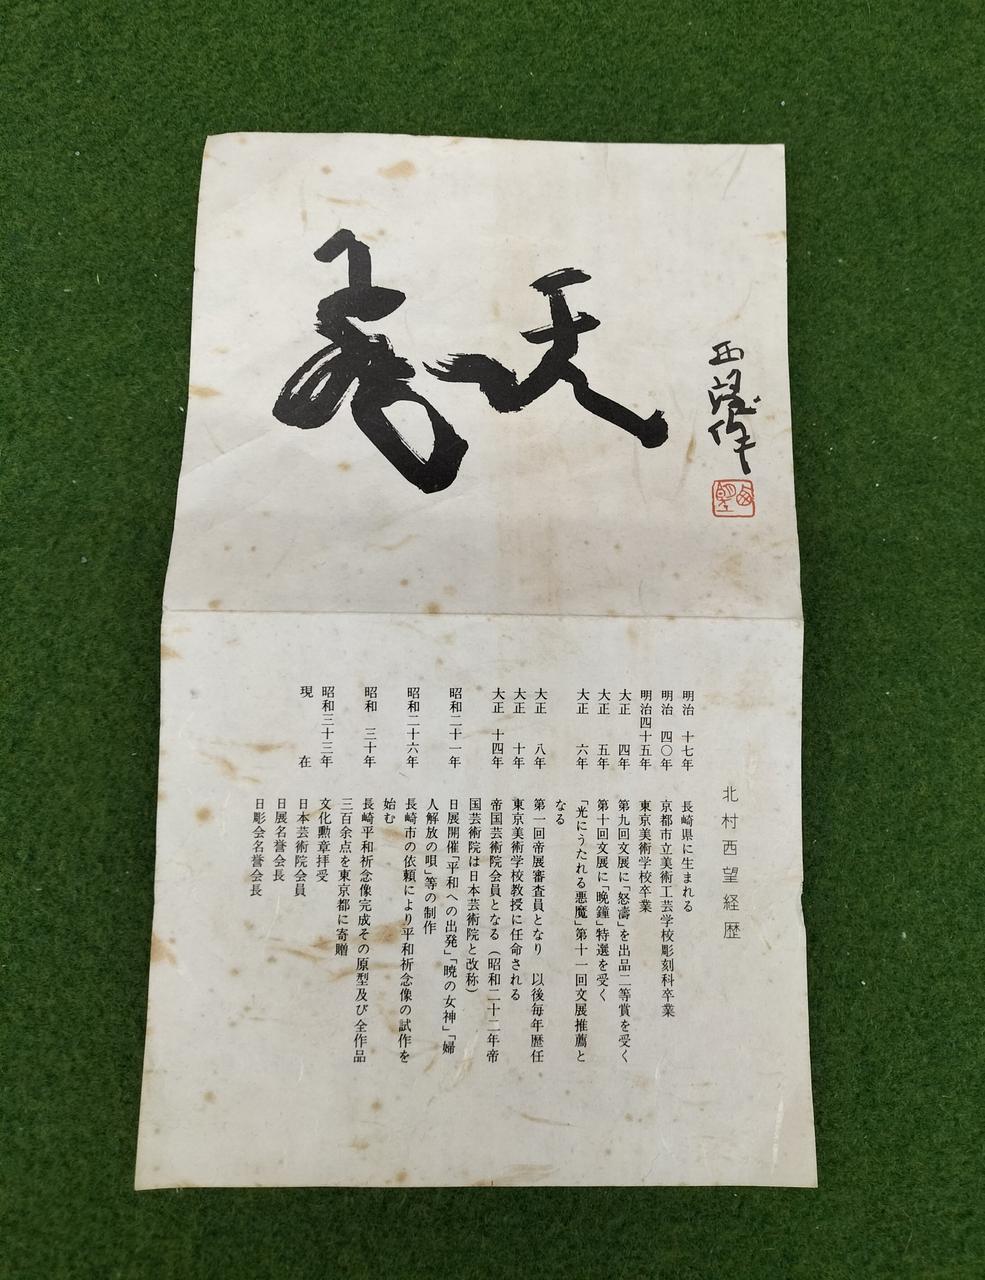 西望作
天
北村西望経歴
明治 十七年 長崎県に生まれる
明治 四〇年 京都市立美術工芸学校彫刻科卒業
明治四十五年 東京美術学校卒業
大正 四年 第九回文展に「怒濤」を出品二等賞を受く
大正 五年 第十回文展に「晩鐘」特選を受く
大正 六年 「光にうたれる悪魔」第十一回文展推薦と
なる
大正 八年 第一回帝展審査員となり 以後毎年歴任
大正 十年 東京美術学校教授に任命される
大正 十四年 帝国芸術院会員となる(昭和二十二年帝
国芸術院は日本芸術院と改称)
昭和二十一年 日展開催「平和への出発」「暁の女神」「婦
人解放の唄」等の制作
昭和二十六年 長崎市の依頼により平和祈念像の試作を
始む
昭和 三十年 長崎平和祈念像完成その原型及び全作品
三百余点を東京都に寄贈
昭和三十三年 文化勲章拝受
現在 日本芸術院会員
日展名誉会長
日彫会名誉会長